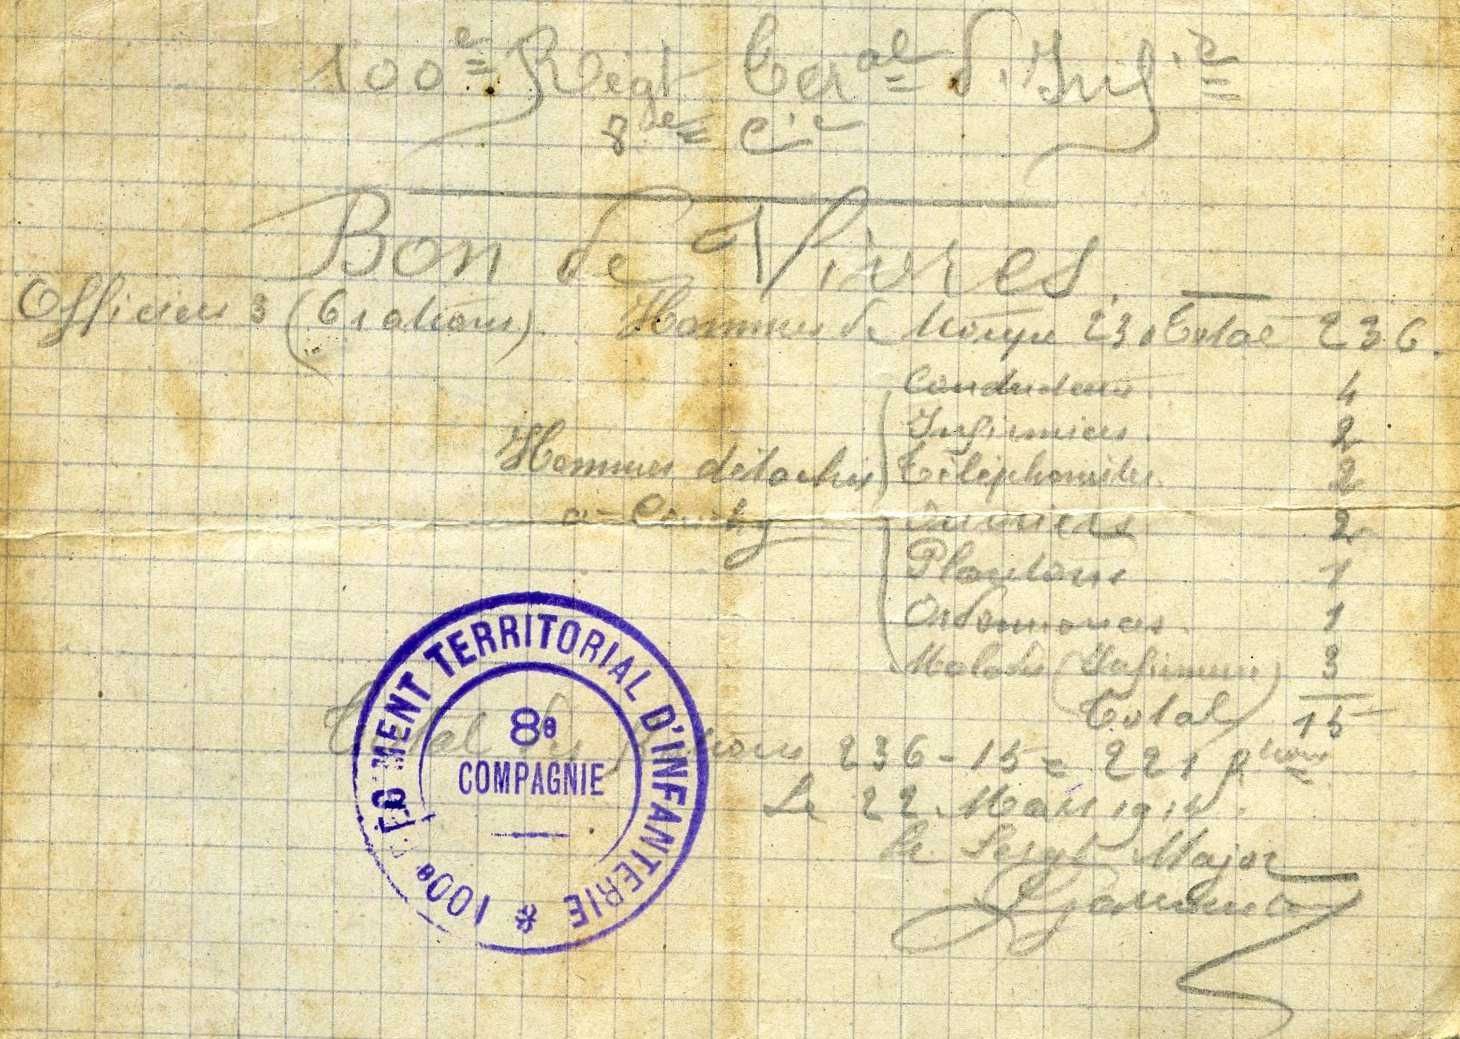 100e Régt Ter al d'Inf ie
8e Cie
Bon de Vivres.
Officiers 3 (6 rations). Hommes de troupe 230 Total 236.
Conducteurs 4
Infirmiers. 2
Hommes détachés Téléphonistes. 2
à 2
Plantons 1
Ordonnances. 1
Malades (Infirmerie) 3
Total 15
Total des rations 236 - 15 = 221 Rations
Le 22 Mars 1915.
Le Sergt Major
100e REGIMENT TERRITORIAL D'INFANTERIE *
8e
COMPAGNIE